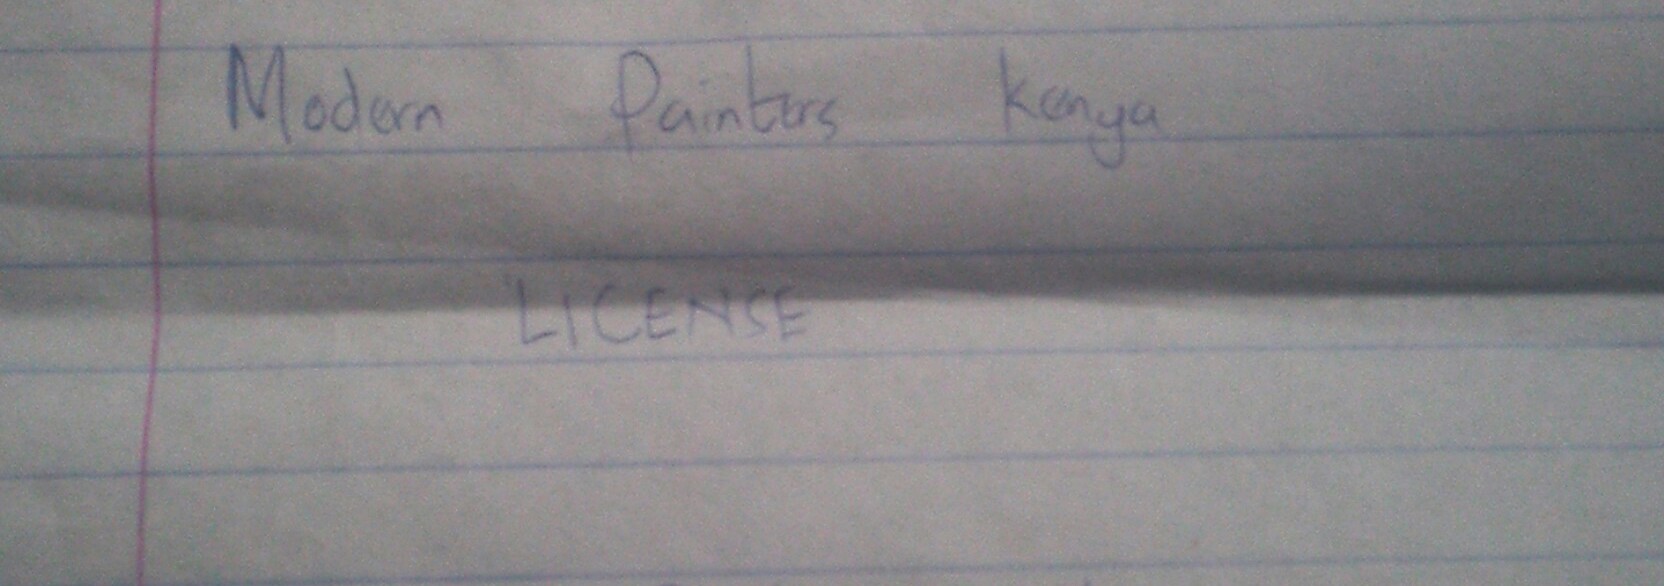 Modern Painters Kenya
LICENSE